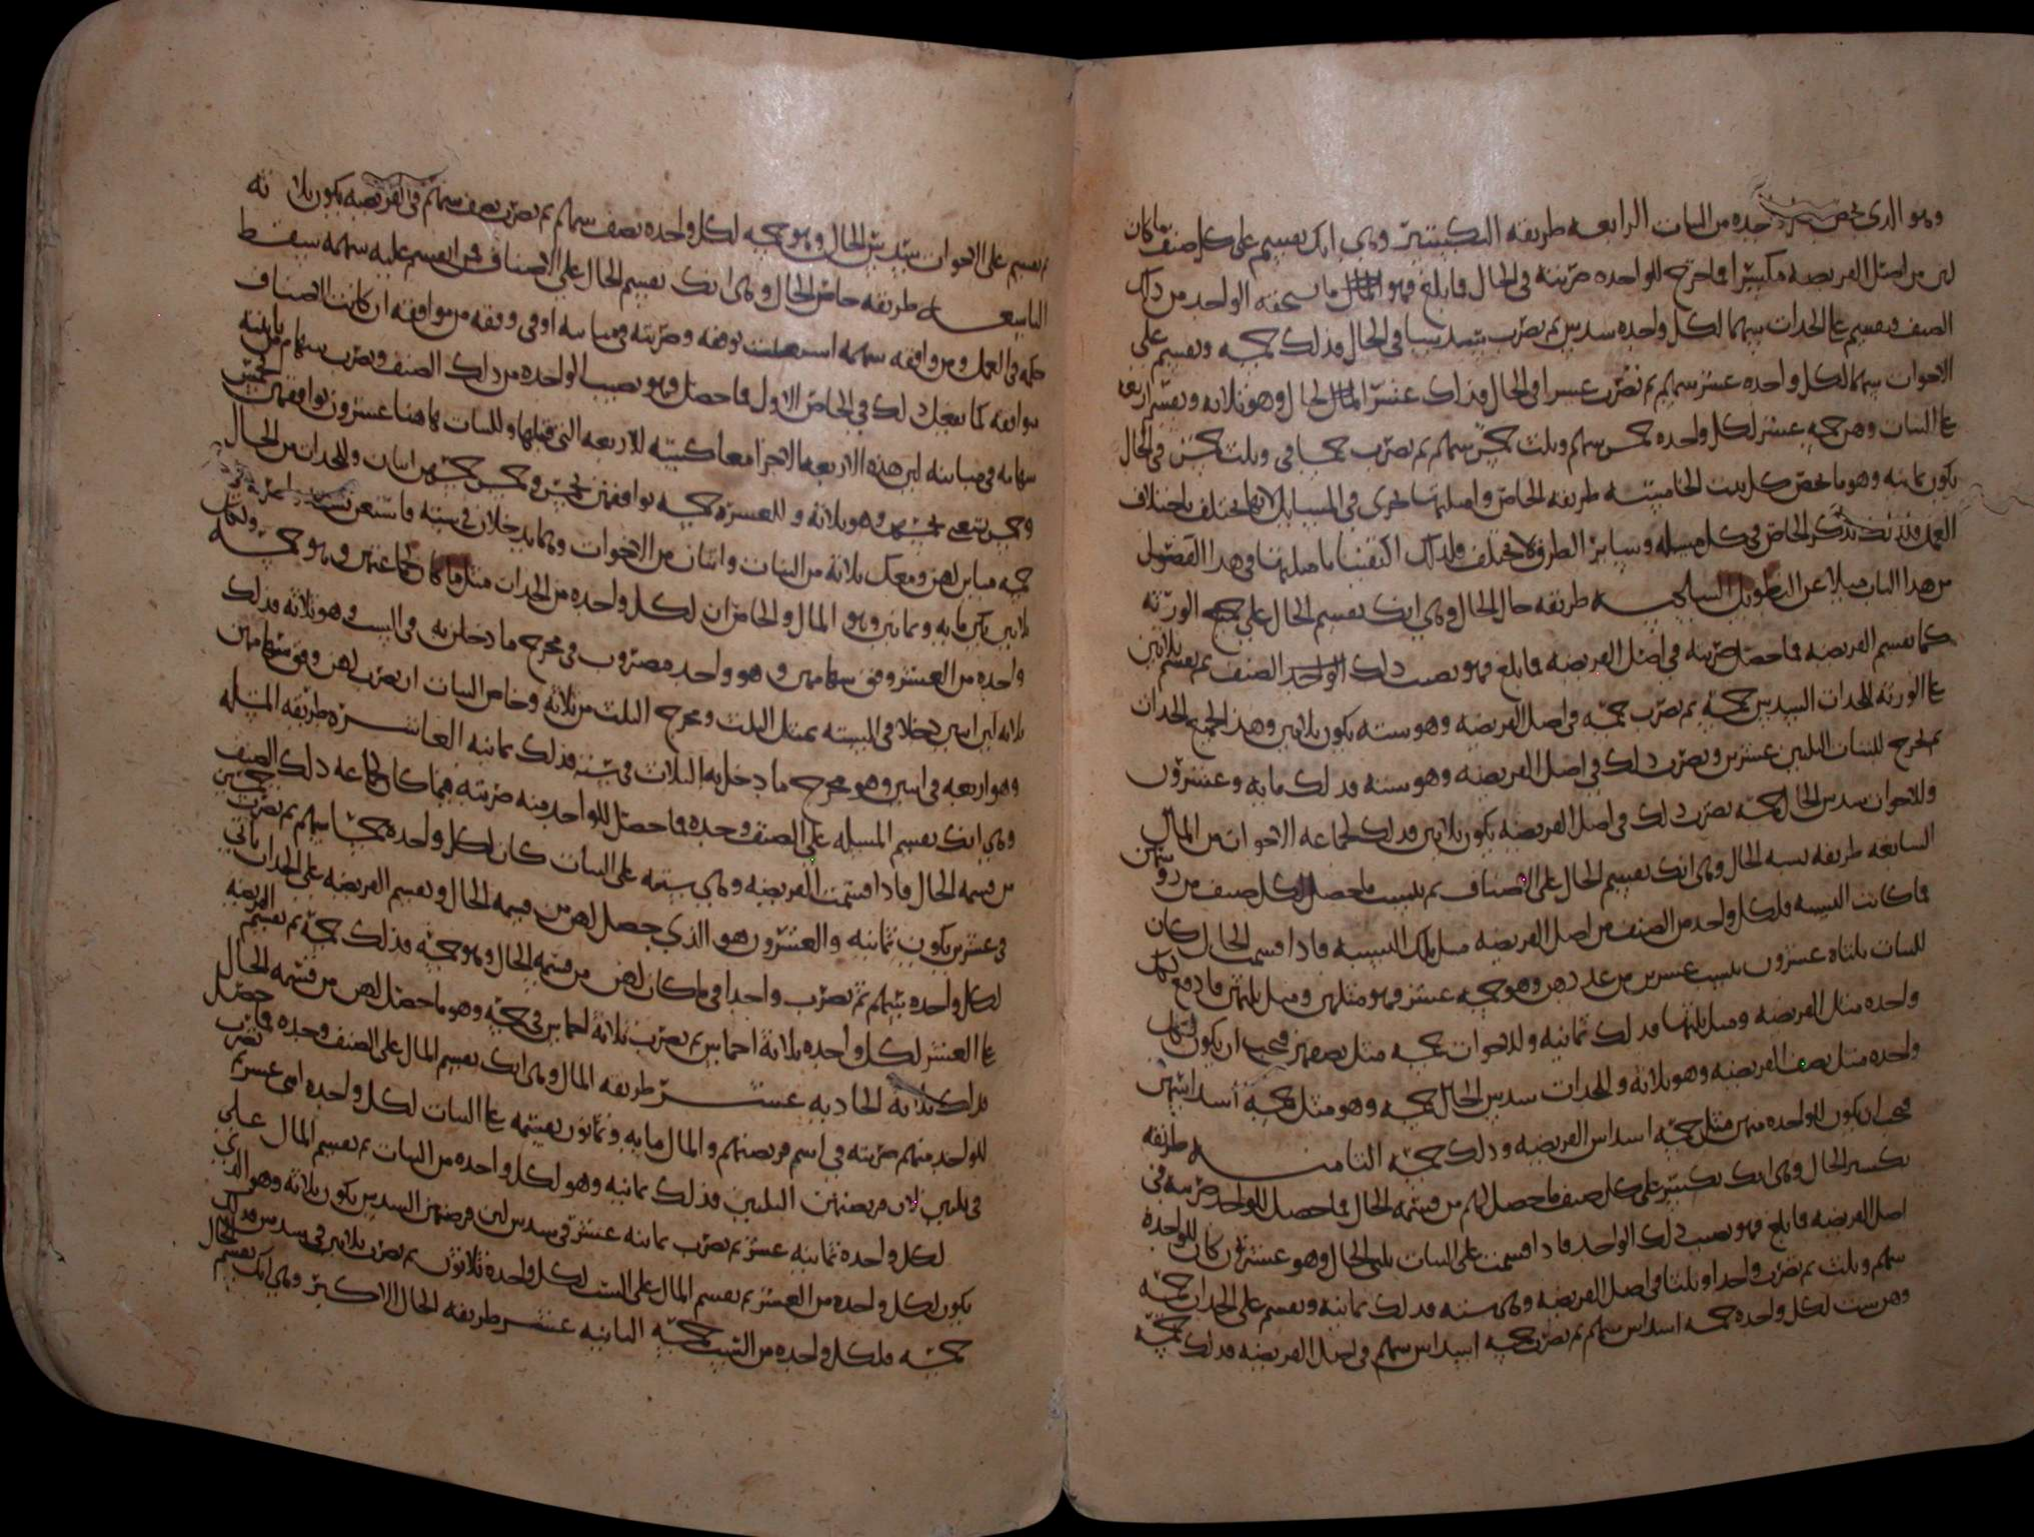 وهو الذي يخص كل واحده من البنات الرابعه طريقه التكسير وهي انك تقسم على كل صنف ما كان
لهن من اصل الفريضه مكسرا فما خرج للواحده ضربته في الحال فما بلغ فهو ما يستحقه الواحد من ذلك
الصنف فتقسم على الجدات سهما لكل واحده سدس ثم تضرب سدسا في الحال فذلك خمسه وتقسم على
الاخوات سهما لكل واحده عشر سهم ثم تضرب عشرا في الحال فذلك عشر الحال وهو ثلاثه وتقسم اربعه
على البنات وهن خمسه عشر لكل واحده خمس سهم وثلث خمس سهم ثم تضرب خمسا وثلث خمس في الحال
يكون ثمانيه وهو ما يخص كل بنت الخامسه طريقه الخاص وامثلتها تجري في المسايل لانها تختلف باختلاف
العمل فلذلك نذكر الخاص في كل مسله وساير الطرق لا تختلف فلذلك اكتفينا بامثلتها في هذا الفصل
من هذا الباب ميلا عن التطويل السادسه طريقه حال الحال وهي انك تقسم الحال على جميع الورثه
كما تقسم الفريضه فما حصل ضربته في اصل الفريضه فما بلغ فهو نصيب ذلك الصنف ثم تقسم ثلاثين
على الورثه للجدات السدس خمسه ثم تضرب خمسه في اصل الفريضه وهو سته يكون ثلاثين وهذا لجميع الجدات
ثم تخرج للبنات الثلثين عشرين وتضرب ذلك في اصل الفريضه وهو سته فذلك مايه وعشرون
وللاخوات سدس الحال خمسه تضرب ذلك في اصل الفريضه يكون ثلاثين فذلك لجماعه الاخوات من المال
السابعه طريقه نسبه الحال وهي انك تقسم الحال على الاصناف ثم تنسب ما حصل لكل صنف من روسهن
فما كانت النسبه فلكل واحد من الصنف من اصل الفريضه مثل تلك النسبه فاذا قسمت الحال كان
للبنات ثلثاه عشرون تنسب عشرين من عددهن وهو خمسه عشر فهو مثلهن ومثل ثلثهن فادفع لكل
واحده مثل الفريضه ومثل ثلثها فذلك ثمانيه وللاخوات خمسه مثل نصفهن فيجب ان يكون لكل
واحده مثل نصف الفريضه وهو ثلاثه والجدات سدس الحال خمسه وهو مثل خمسه اسداسهن
فيجب ان يكون للواحده منهن مثل خمسه اسداس الفريضه وذلك خمسه الثامنه طريقه
تكسير الحال وهي انك تكسر على كل صنف ما حصل لهم من قسمه الحال فما حصل للواحد ضربته في
اصل الفريضه فما بلغ فهو نصيب ذلك الواحد فاذا قسمت على البنات ثلثي الحال وهو عشرون كان للواحده
سهم وثلث ثم تضرب واحدا وثلثا في اصل الفريضه وهي سته فذلك ثمانيه وتقسم على الجدات خمسه
وهن ست لكل واحده خمسه اسداس سهم ثم تضرب خمسه اسداس سهم في اصل الفريضه فذلك خمسه
ثم تقسم على الاخوات سدس الحال وهو خمسه لكل واحده نصف سهم ثم تضرب نصف سهم في الفريضه يكون ثلاثه
التاسعه طريقه خاص الحال وهي انك تقسم الحال على الاصناف فمن انقسم عليه سهمه سقط
حكمه في العمل ومن وافقه سهمه استعملت وفقه وضربته في مباينه او في وفقه من موافقه ان كانت الاصناف
موافقه كما تفعل ذلك في الخاص الاول فما حصل فهو نصيب الواحده من ذلك الصنف وتضرب سهام من باينه
سهامه في مباينه لان هذه الاربعه الاخرا معاكسه للاربعه التي قبلها وللبنات هاهنا عشرون توافقهن بخمس
وخمس تسعى بخمسهن وهو ثلاثه وللعشره خمسه توافقهن بخمس وخمس خمسهن اثنان وللجدات من الحال
خمسه مباين لهن ومعك ثلاثه من البنات واثنان من الاخوات وهما يدخلان في سته
ثلاثين يكن مايه وثمانين وهو المال والخاص ان لكل واحده من الجدات مثل ما كان لجماعتهن وهو خمسه ولكل
واحده من العشر وفق سهامهن وهو واحد مضروب في مخرج ما دخلن به في الست وهو ثلاثه فذلك
ثلاثه لان اثنين دخلا في السته بمثل الثلث ومخرج الثلث من ثلاثه وخاص البنات ان تضرب لهن وفق سهامهن
وهو اربعه في اثنين وهو مخرج ما دخل به الثلاث في سته فذلك ثمانيه العاشره طريقه المسله
وهي انك تقسم المسله على الصنف وحده فما حصل للواحد منه ضربته فيما كان لجماعه ذلك الصنف
من قسمه الحال فاذا قسمت الفريضه وهي سته على البنات كان لكل واحده خمسا سهم ثم تضرب خمسين
في عشرين يكون ثمانيه والعشرون هو الذي حصل لهن من قسمه الحال وتقسم الفريضه على الجدات ياتي
لكل واحده سهم ثم تضرب واحدا في ما كان لهن من قسمه الحال وهو خمسه فذلك خمسه ثم تقسم الفريضه
على العشر لكل واحده ثلاثه اخماس ثم تضرب ثلاثه اخماس في خمسه وهو ما حصل لهن من قسمه الحال
فذلك ثلاثه الحاديه عشر طريقه المال وهي انك تقسم المال على الصنف وحده فما حصل
للواحد منهم ضربته في اسم فريضتهم والمال مايه وثمانون تقسمه على البنات لكل واحده اثنى عشر ثم تضرب
في ثلثين لان فريضتهن الثلثين فذلك ثمانيه وهو لكل واحده من البنات ثم تقسم المال على
لكل واحده ثمانيه عشر ثم تضرب ثمانيه عشر في سدس لان فرضهن السدس يكون ثلاثه وهو الذي
يكون لكل واحده من العشر ثم تقسم المال على الست لكل واحده ثلاثون ثم تضرب ثلاثين في سدس فذلك
خمسه فلكل واحده من الست خمسه الثانيه عشر طريقه الحال الاكبر وهي انك تقسم الحال